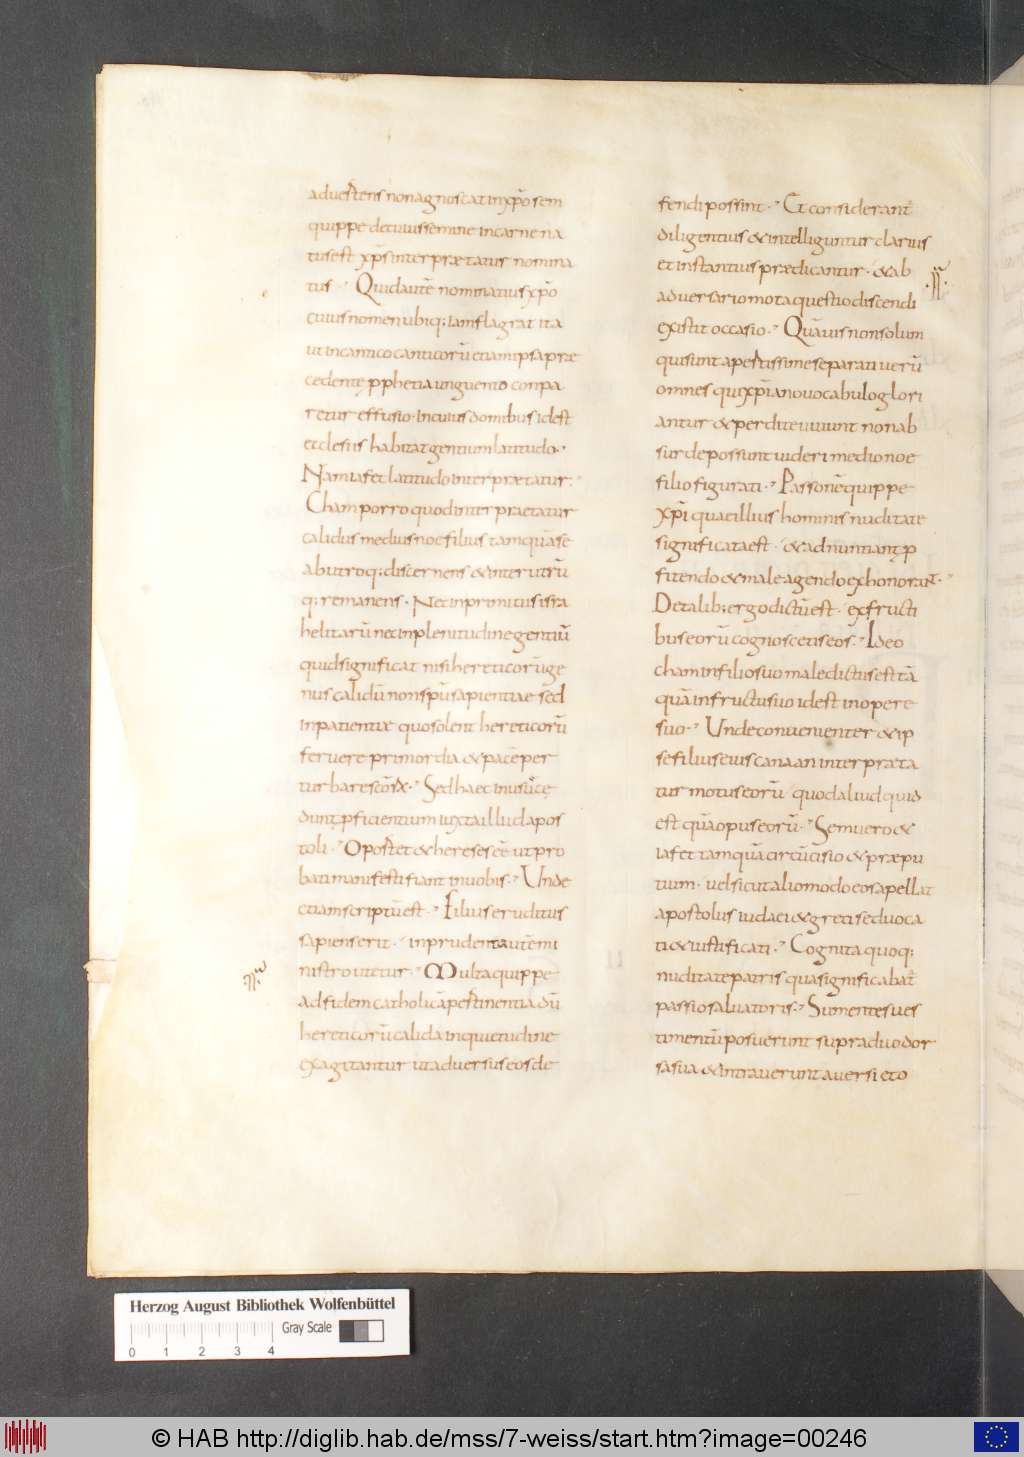 aduertens non agnoscat in xp̄o sem
quippe de cuius semine in carne na
tus est xp̄s interprætatur nomina
tus · Quid autē nominatius xp̄o
cuius nomen ubiq; iam flagrat ita
ut in cantico canticorū etiam ipsa præ
cedente pphetia unguento conpa
retur effuso · in cuius domibus id est
ecclesiis habitat gentium latitudo ·
Nam iafet latitudo interprætatur ·
Cham porro quod interpraetatur
calidus medius noe filius tamquā se
ab utroq; discernens & inter utrū
q; remanens · Nec in primitus isra
helitarū nec in plenitudine gentiū
quid significat nisi hereticorū ge
nus calidū non spū sapientiae sed
inpatientiæ quo solent hereticorū
feruere primordia & pacē per
turbare scōrū · Sed haec in usū ce
dunt pficientium iuxta illud apos
toli · Oportet & hereses eē ut pro
bati manifesti fiant in uobis · Unde
etiam scriptū est · Filius eruditus
sapiens erit · inprudent autē mi
nistro utetur · Multa quippe
ad fidem catholicā pertinentia dū
hereticorū calida inquietudine
exagitantur ut aduersus eos de
fendi possint · Et considerant̄
diligentius & intelliguntur clarius
et instantius prædicantur · & ab
aduersario mota questio discendi
existit occasio · Quāuis non solum
qui sunt apertissime separati uerū
omnes qui xp̄iano uocabulo glori
antur & perdite uiuunt non ab
surde possunt uideri medio noe
filio figurati · Passonē quippe
xp̄i quae illius hominis nuditate
significata est · & adnuntiant p
fitendo & male agendo exhonorant ·
De talib; ergo dictū est · ex fructi
bus eorū cognoscetis eos · Ideo
cham in filio suo maledictus est tā
quā in fructu suo id est in opere
suo · Unde conuenienter & ip
se filius eius canaan interpræta
tur motus eorū quod aliud quid
est quā opus eorū · Sem uero &
iafet tamquā circūcisio & præpu
tium · uel sicut alio modo eos apellat
apostolus iudaei & greci sed uoca
ti & iustificati · Cognita quoq;
nuditate patris qua significabat̄
passio saluatoris · Sumentes ues
timentū posuerunt supra duo dor
sa sua & intrauerunt auersi & o
Herzog August Bibliothek Wolfenbüttel
Gray Scale
0 1 2 3 4
© HAB http://diglib.hab.de/mss/7-weiss/start.htm?image=00246